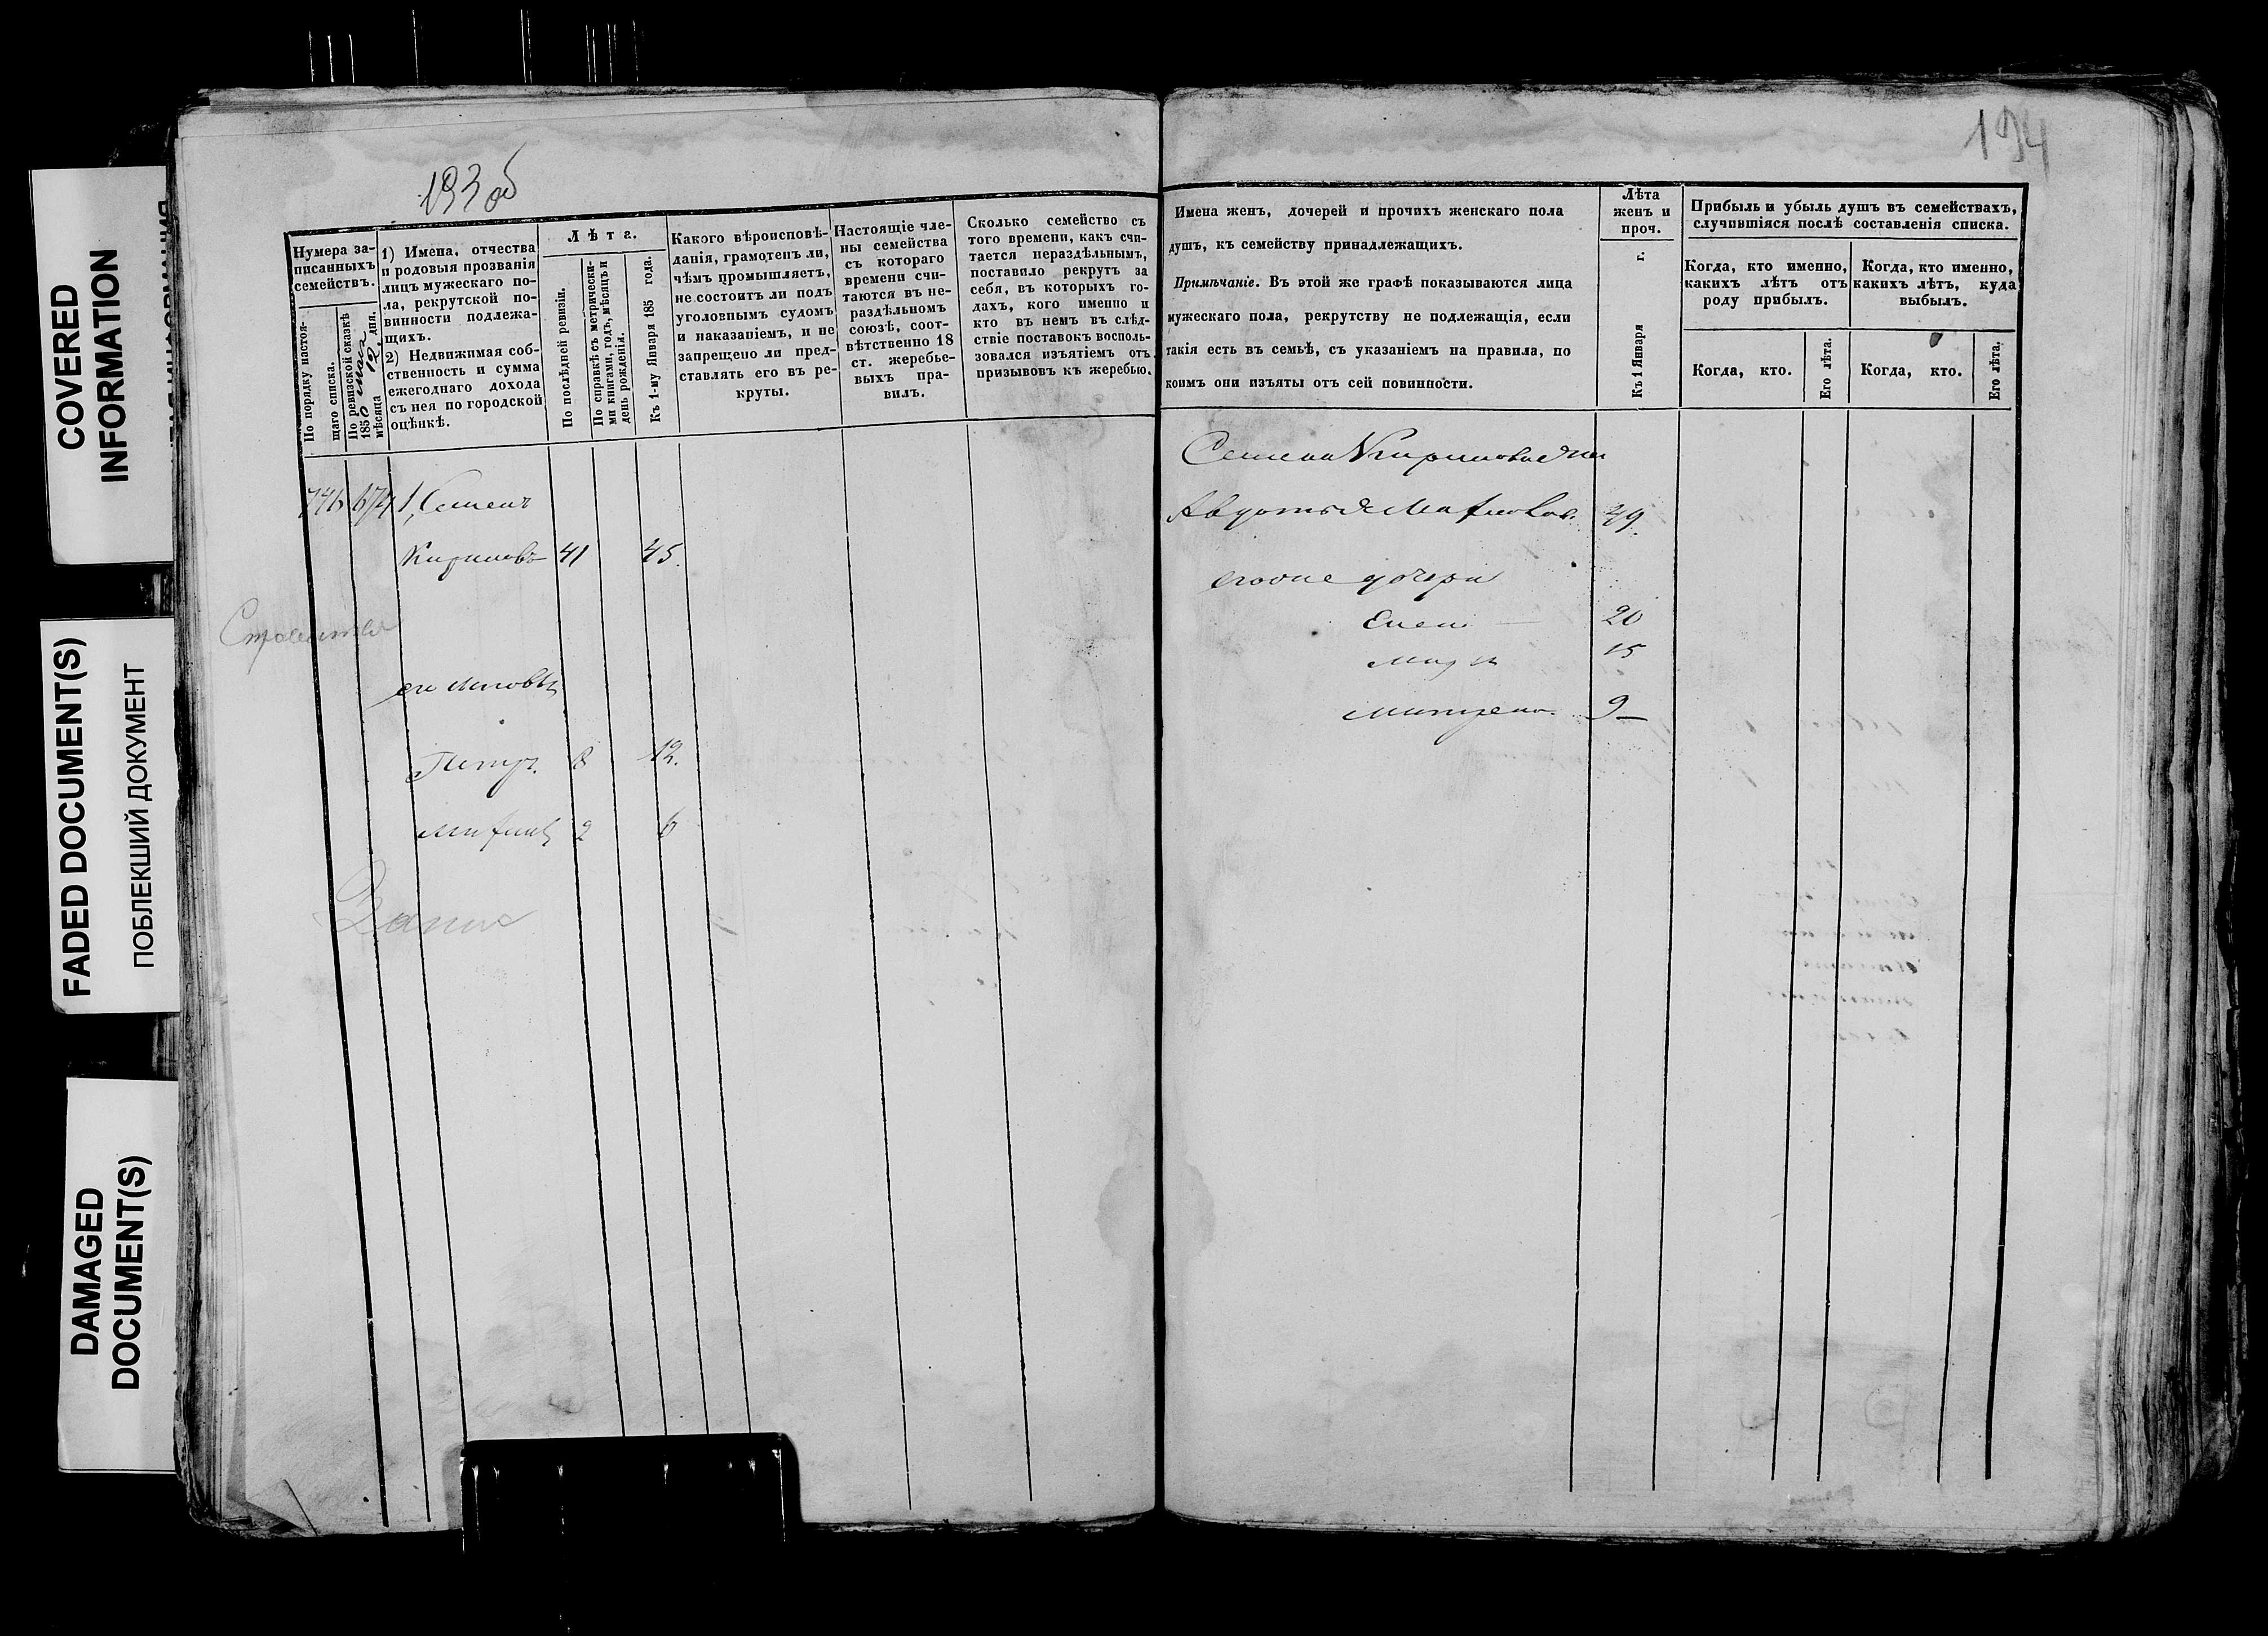 COVERED
INFORMATION
FADED DOCUMENT(S)
ПОБЛЕКШИЙ ДОКУМЕНТ
DAMAGED
DOCUMENT(S)
193 об
Нумера за-
писанныхъ
семействъ.
По порядку настоя-
щаго списка.
По ревизской сказкѣ
1850
мѣсяца 12 дня.
1) Имена, отчества
и родовыя прозванія
лицъ мужескаго по-
ла, рекрутской по-
винности подлежа-
щихъ.
2) Недвижимая соб-
ственность и сумма
ежегоднаго дохода
съ нея по городской
оцѣнкѣ.
Лѣтъ.
По послѣдней ревизіи.
По справкѣ съ метрически-
ми книгами, годъ, мѣсяцъ и
день рожденія.
Къ 1-му Января 185 года.
Какого вѣроисповѣ-
данія, грамотенъ ли,
чѣмъ промышляетъ,
не состоитъ ли подъ
уголовнымъ судомъ
и наказаніемъ, и не
запрещено ли пред-
ставлять его въ ре-
круты.
Настоящіе чле-
ны семейства
съ котораго
времени счи-
таются въ не-
раздѣльномъ
союзѣ, соот-
вѣтственно 18
ст. жеребье-
выхъ пра-
вилъ.
Сколько семейство съ
того времени, какъ счи-
тается нераздѣльнымъ,
поставило рекрутъ за
себя, въ которыхъ го-
дахъ, кого именно и
кто въ немъ въ слѣд-
ствіе поставокъ восполь-
зовался изъятіемъ отъ
призывовъ къ жеребью.
746 674 1, Семенъ
Кириловъ 41 45.
его сыновья
Петръ. 8 12.
2 6
194
Имена женъ, дочерей и прочихъ женскаго пола
душъ, къ семейству принадлежащихъ.
Примѣчаніе. Въ этой же графѣ показываются лица
мужескаго пола, рекрутству не подлежащія, если
такія есть въ семьѣ, съ указаніемъ на правила, по
коимъ они изъяты отъ сей повинности.
Лѣта
женъ и
проч.
Къ 1 Января г.
Прибыль и убыль душъ въ семействахъ,
случившіяся послѣ составленія списка.
Когда, кто именно,
какихъ лѣтъ отъ
роду прибылъ.
Когда, кто именно,
какихъ лѣтъ, куда
выбылъ.
Когда, кто.
Его лѣта.
Когда, кто.
Его лѣта.
Семена Кирилова жена
Авдотья 49.
дочери
Елена 20
15
Матрена. 9